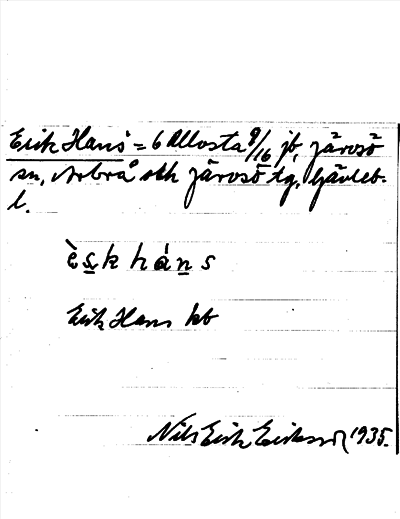 Erik Hans = 6 Ullosta 9/16 jb, Järvsö
sn, Arbrå och Järvsö tg, Gävleb.
l.
èsk háns
Erik Hans kb
Nils Erik Eriksson 1935.